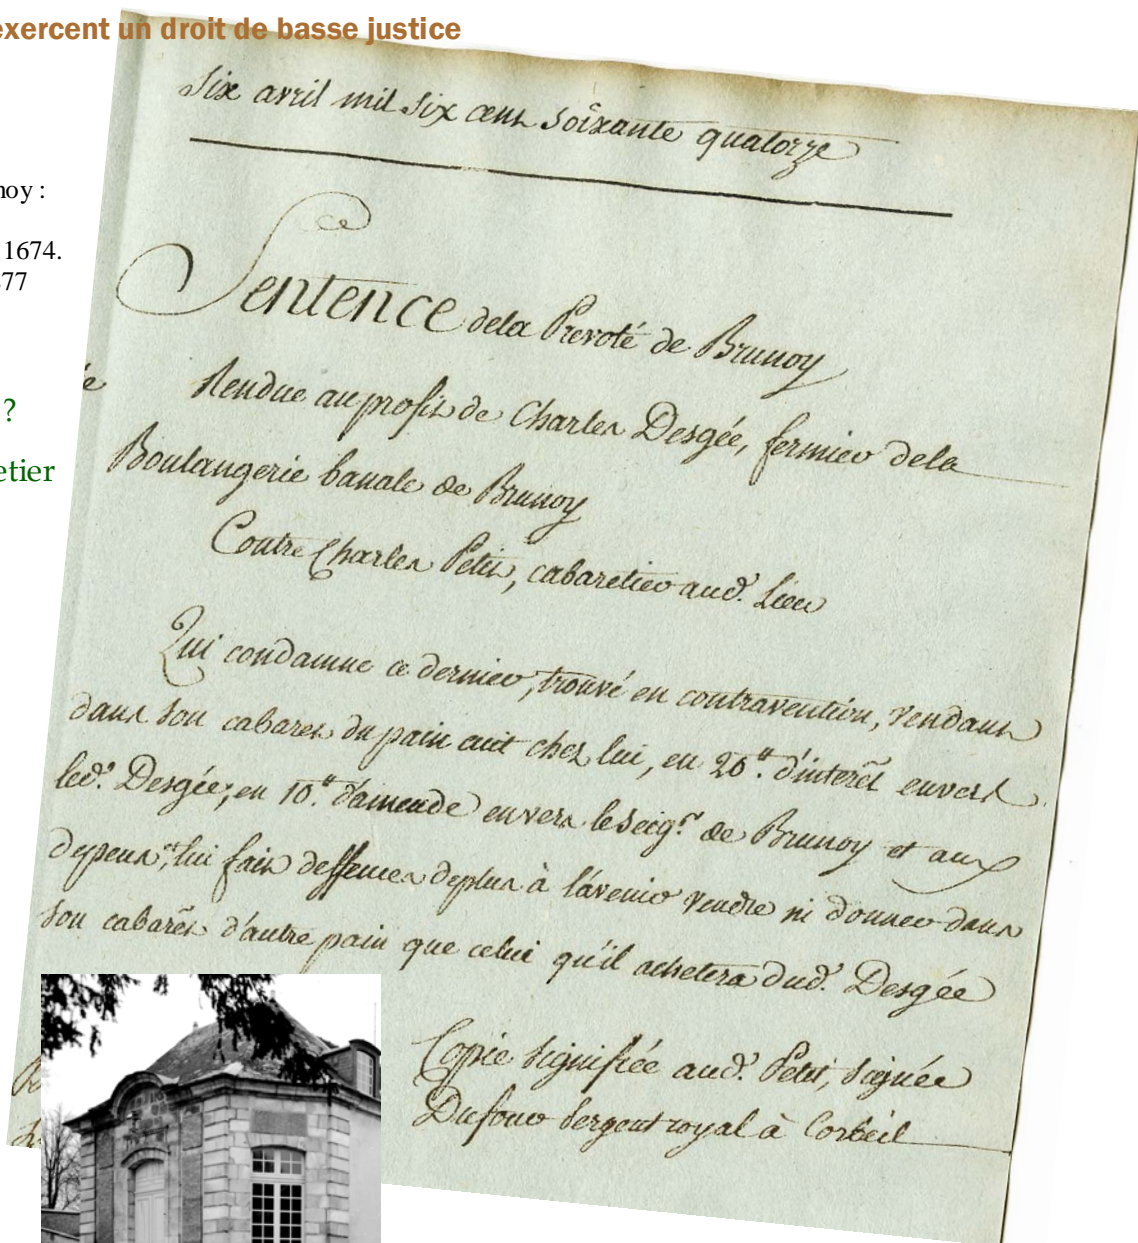 exercent un droit de basse justice
noy :
1674.
77
?
etier
Six avril mil six cent soixante quatorze
Sentence de la Prevoté de Brunoy
Rendue au profit de Charles Desgée, fermier de la
Boulangerie banale de Brunoy
Contre Charles Petit, cabaretier aud. Lieu
Qui condamne ce dernier, trouvé en contravention, vendant
dans son cabaret du pain cuit chez lui, en 20tt. d'interêt envers
led. Desgée; en 10tt. d'amende envers le seigr. de Brunoy et aux
depens; lui fait deffenses de plus à l'avenir vendre ni donner dans
son cabarêt d'autre pain que celui qu'il achetera dud. Desgée
Copie signifiée aud. Petit, signée
Dufour sergent royal à Corbeil